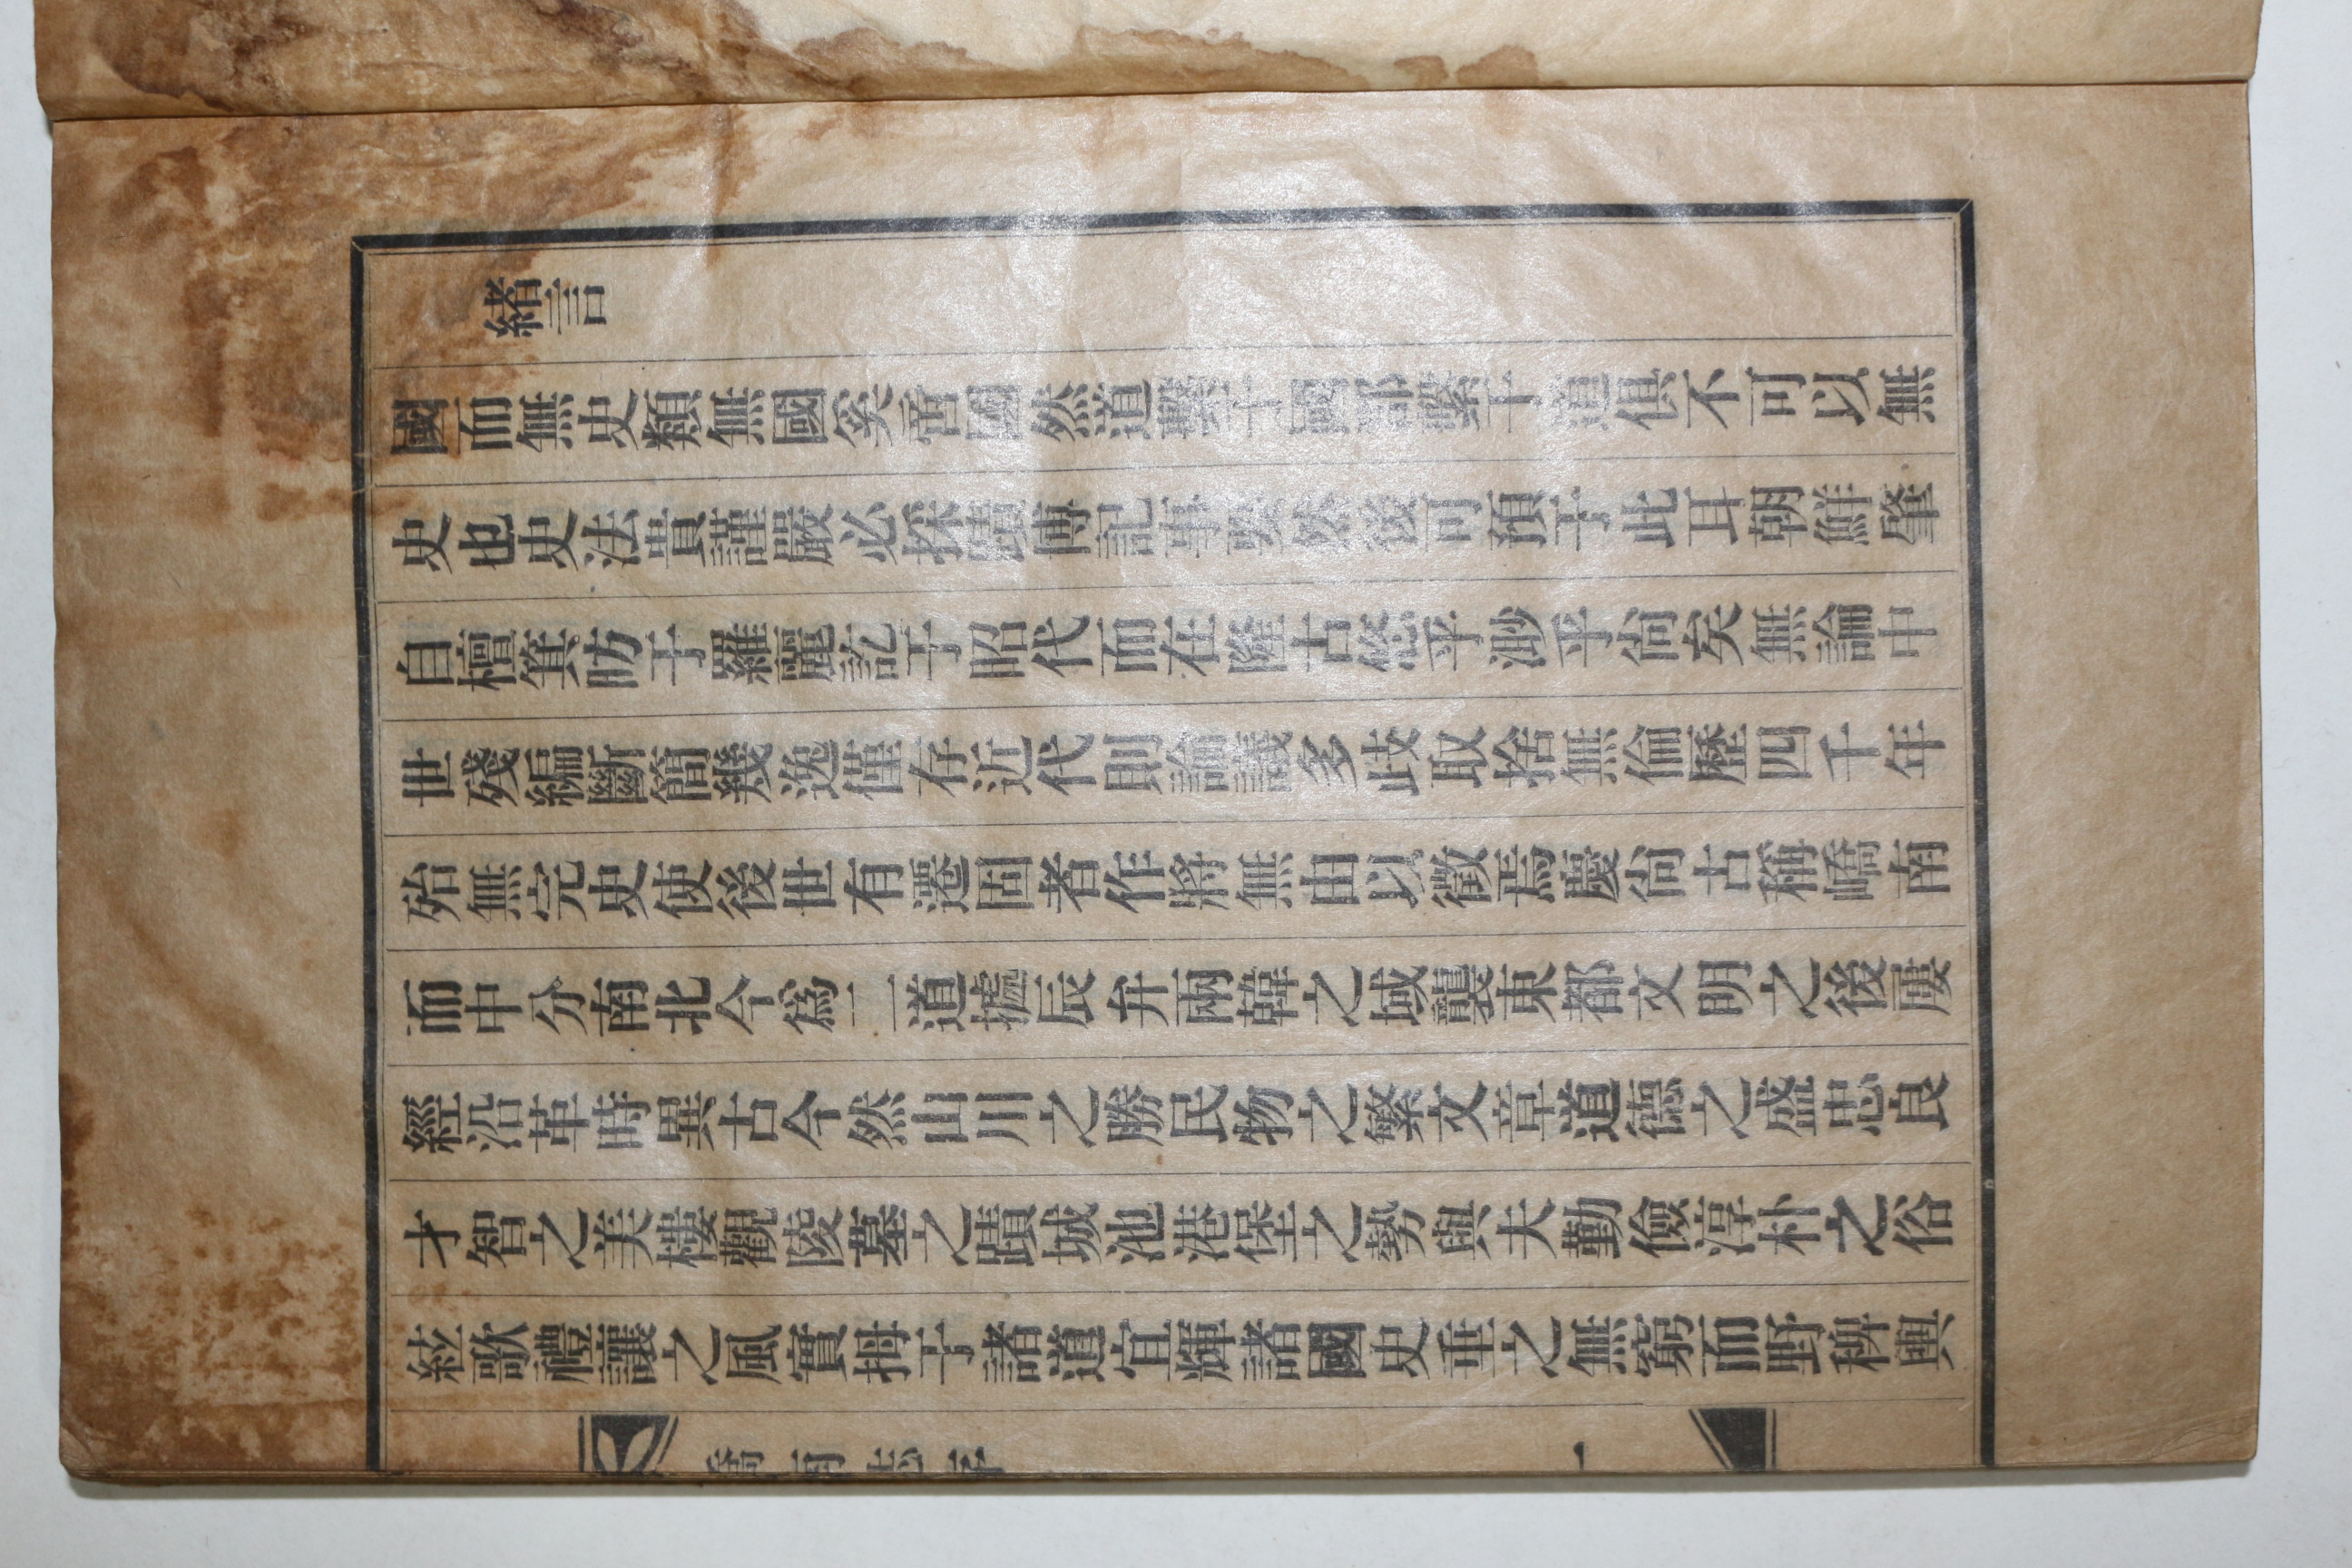 緒言
國而無史類無國奚啻國然道繫于國郡繫于道俱不可以無
史也史法貴謹嚴必採據博記事覈然後可預于此耳朝鮮肇
自檀箕昉于羅麗訖于昭代而在隆古悠乎渺乎尙矣無論中
世殘編斷簡幾逸僅存近代則論議多歧取捨無倫歷四千年
殆無完史使後世有遷固者作將無由以徵焉慶尙古稱嶠南
而中分南北今爲二道據辰弁兩韓之域襲東都文明之後屢
經沿革時異古今然山川之勝民物之繁文章道德之盛忠良
才智之美樓觀陵墓之蹟城池港堡之勢與夫勤儉淳朴之俗
絃歌禮讓之風實拇于諸道宜輝諸國史垂之無窮而野稗與